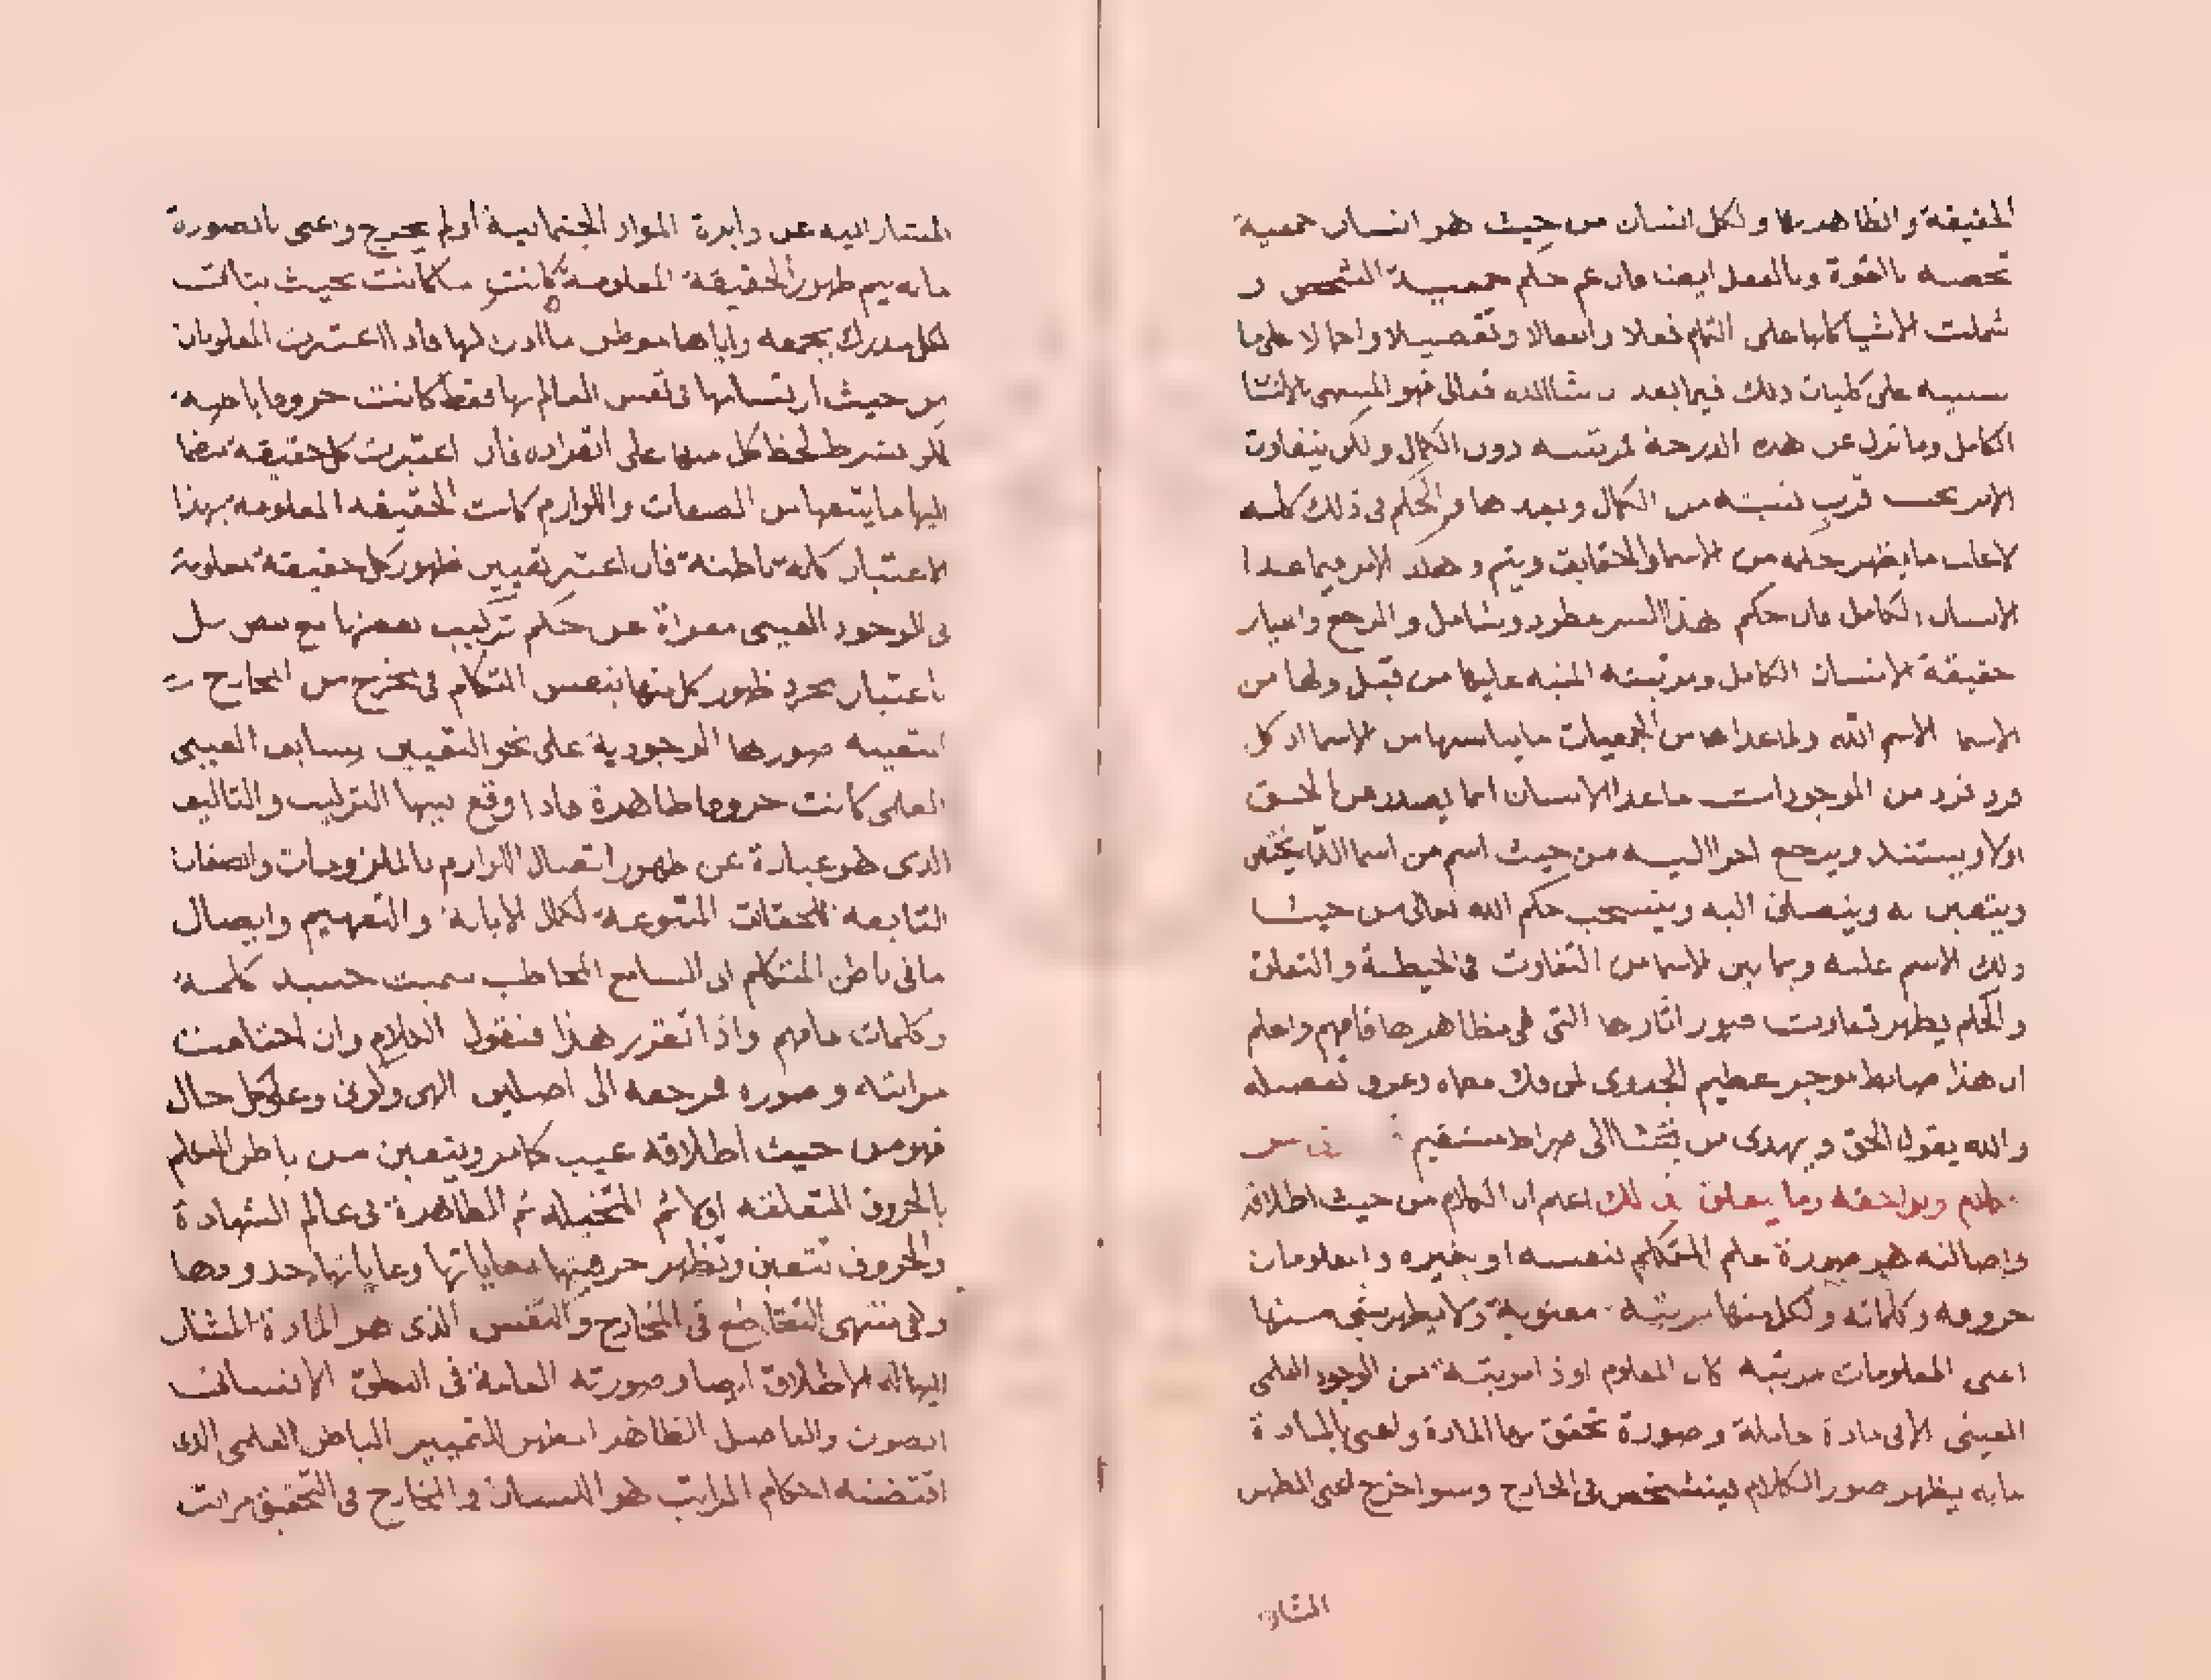 الحقيقة والظاهر بها ولكل انسان من حيث هو انسان جمعية
تخصه بالقوة وبالفعل ايضا فان عم حكم جمعية الشخص و
شملت الاشيا كلها على التمام فعلا وانفعالا وتفصيلا واجمالا على ما
سننبه على كليات ذلك فيما بعد ان شا الله تعالى فهو المسمى بالانسا
الكامل وما نزل عن هذه الدرجة فمرتبته دون الكمال ولكن يتفاوت
الامر بحسب قرب نسبته من الكمال وبعدها والحكم في ذلك كله
لاغلب ما يظهر حكمه من الاسما والحقايق ويتم وهكذا الامر فيما عدا
الانسان الكامل فان حكم هذا السر مطرد وشامل والمرجع واعيار
حقيقة الانسان الكامل ومرتبته المنبه عليها من قبل ولها من
الاسما الاسم الله ولما عداها من الجمعيات ما يناسبها من الاسما اذ كل
فرد فرد من الموجودات ما عدا الانسان انما يصدر من الحق
اولا ويستند ويرجع اخرا اليه من حيث اسم من اسما الله يختص
ويتعين به وينضاف اليه وينسحب حكم الله تعالى من حيث
ذلك الاسم عليه وبما بين الاسما من التفاوت في الحيطة والتعلق
والحكم يظهر تفاوت صور اثارها التي هي مظاهرها فافهم واعلم
ان هذا ضابط موجز عظيم الجدوى لمن فك معماه وعرف تفصيله
والله يقول الحق ويهدي من يشا الى صراط مستقيم في سر
الكلام ولواحقه وما يتعلق بذلك اعلم ان الكلام من حيث اطلاقه
واصالته هو صورة علم المتكلم بنفسه او بغيره والمعلومات
حروفه وكلماته ولكل منها مرتبة معنوية ولا يظهر شي منها
اعني المعلومات مرتبة كان المعلوم او ذا مرتبة من الوجود العلمي
العيني الا في مادة حاملة وصورة تحقق بها المادة واعني بالمادة
ما به يظهر صور الكلام فيتشخص في الخارج وسوا خرج اعني المظهر
المشار
المشار اليه عن دايرة المواد الجثمانية او لم يخرج واعني بالصورة
ما به يتم ظهور الحقيقة المعلومة كانت ما كانت بحيث يتاتى
لكل مدرك يجمعه واياها موطن ما ادراكها فاذا اعتبرت المعلومات
من حيث ارتسامها في نفس العالم بها فقط كانت حروفا باطنية
لكن بشرط لحظ كل منها على انفراده فان اعتبرت كل حقيقة منضما
اليها ما يتبعها من الصفات واللوازم كانت الحقيقة المعلومة بهذا
الاعتبار كلمة باطنة فان اعتبر تعيين ظهور كل حقيقة معلومة
في الوجود العيني معراة عن حكم تركيب بعضها مع بعض بل
باعتبار مجرد ظهور كل منها بنفس المتكلم في مخرج من المخارج
لتعينه صورها الوجودية على نحو التعيين بسابق الغيبي
العلمي كانت حروفا ظاهرة فاذا وقع بينها التركيب والتاليف
الذي هو عبارة عن ظهور اتصال اللوازم بالملزومات والصفات
التابعة للحقايق المتبوعة لكمال الابانة والتفهيم وايصال
ما في باطن المتكلم الى السامع المخاطب سميت حينئذ كلمة
وكلمات فافهم واذا تقرر هذا فنقول الكلام وان اختلفت
مراتبه وصوره فمرجعه الى اصلين الهي وكوني وعلى كل حال
فهو من حيث اطلاقه غيب كامن ويتعين من باطن المتكلم
بالحروف المتعلقة اولا ثم المتخيلة ثم الظاهرة في عالم الشهادة
والحروف تتعين وتظهر حرفيتها بغاياتها وغاياتها حدودها
وهي منتهى التقاطع في المخارج والنفس الذي هو المادة المشار
اليها له الاطلاق ايضا وصورته العامة في النطق الانساني
الصوت والفاصل الظاهر المظهر للتمييز الباطن العلمي الذي
اقتضته احكام المراتب هو اللسان والمخارج في التحقيق مراتب